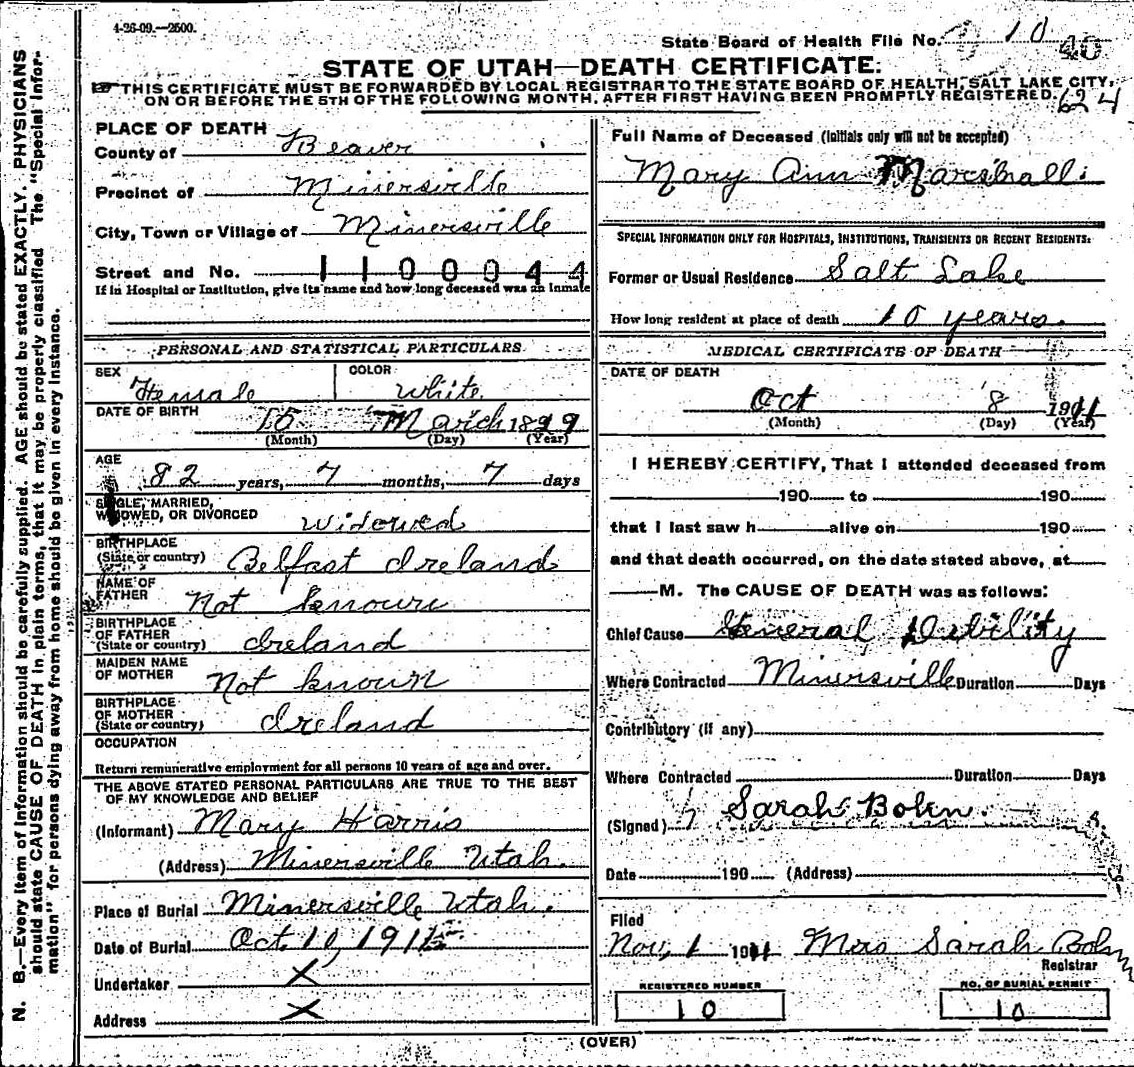 4-26-09.—2500.
State Board of Health File No. 10 40
STATE OF UTAH—DEATH CERTIFICATE:
THIS CERTIFICATE MUST BE FORWARDED BY LOCAL REGISTRAR TO THE STATE BOARD OF HEALTH, SALT LAKE CITY,
ON OR BEFORE THE 5TH OF THE FOLLOWING MONTH, AFTER FIRST HAVING BEEN PROMPTLY REGISTERED. 624
PLACE OF DEATH
County of Beaver
Precinct of Minersville
City, Town or Village of Minersville
Street and No. 1100044
If in Hospital or Institution, give its name and how long deceased was an Inmate
PERSONAL AND STATISTICAL PARTICULARS
SEX Female COLOR White
DATE OF BIRTH 15 March 18
(Month) (Day) (Year)
AGE 82 years, 7 months, 7 days
SINGLE, MARRIED,
WIDOWED, OR DIVORCED Widowed
BIRTHPLACE
(State or country) Belfast Ireland
NAME OF
FATHER Not known
BIRTHPLACE
OF FATHER
(State or country) Ireland
MAIDEN NAME
OF MOTHER Not known
BIRTHPLACE
OF MOTHER
(State or country) Ireland
OCCUPATION
Return remunerative employment for all persons 10 years of age and over.
THE ABOVE STATED PERSONAL PARTICULARS ARE TRUE TO THE BEST
OF MY KNOWLEDGE AND BELIEF
(Informant) Mary Harris
(Address) Minersville Utah.
Place of Burial Minersville Utah.
Date of Burial Oct. 10, 1911
Undertaker X
Address X
Full Name of Deceased (Initials only will not be accepted)
Mary Ann Marshall
SPECIAL INFORMATION ONLY FOR HOSPITALS, INSTITUTIONS, TRANSIENTS OR RECENT RESIDENTS:
Former or Usual Residence Salt Lake
How long resident at place of death 10 years.
MEDICAL CERTIFICATE OF DEATH
DATE OF DEATH
Oct 8 1911
(Month) (Day) (Year)
I HEREBY CERTIFY, That I attended deceased from
190 to 190
that I last saw h alive on 190
and that death occurred, on the date stated above, at
M. The CAUSE OF DEATH was as follows:
Chief Cause General Debility
Where Contracted Minersville Duration Days
Contributory (if any)
Where Contracted Duration Days
(Signed) Sarah Bohn.
Date 190 (Address)
Filed
Nov, 1 1911 Mrs Sarah Bohn
Registrar
REGISTERED NUMBER
10
NO. OF BURIAL PERMIT
10
(OVER)
N. B.—Every item of information should be carefully supplied. AGE should be stated EXACTLY. PHYSICIANS
should state CAUSE OF DEATH in plain terms, that it may be properly classified The "Special Infor-
mation" for persons dying away from home should be given in every instance.